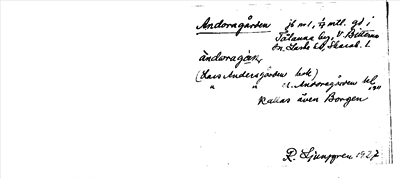 Andoragården jb nr 1, mtl. gd i
Tåtanna by, V. Bitterna
sn. Laske hd, Skarab. l.
àndoragàṛn,
(Lars Andersgården hsk)
" " el. Andoragården hfl
1911
Kallas även Borgen
R. Ljunggren 1927